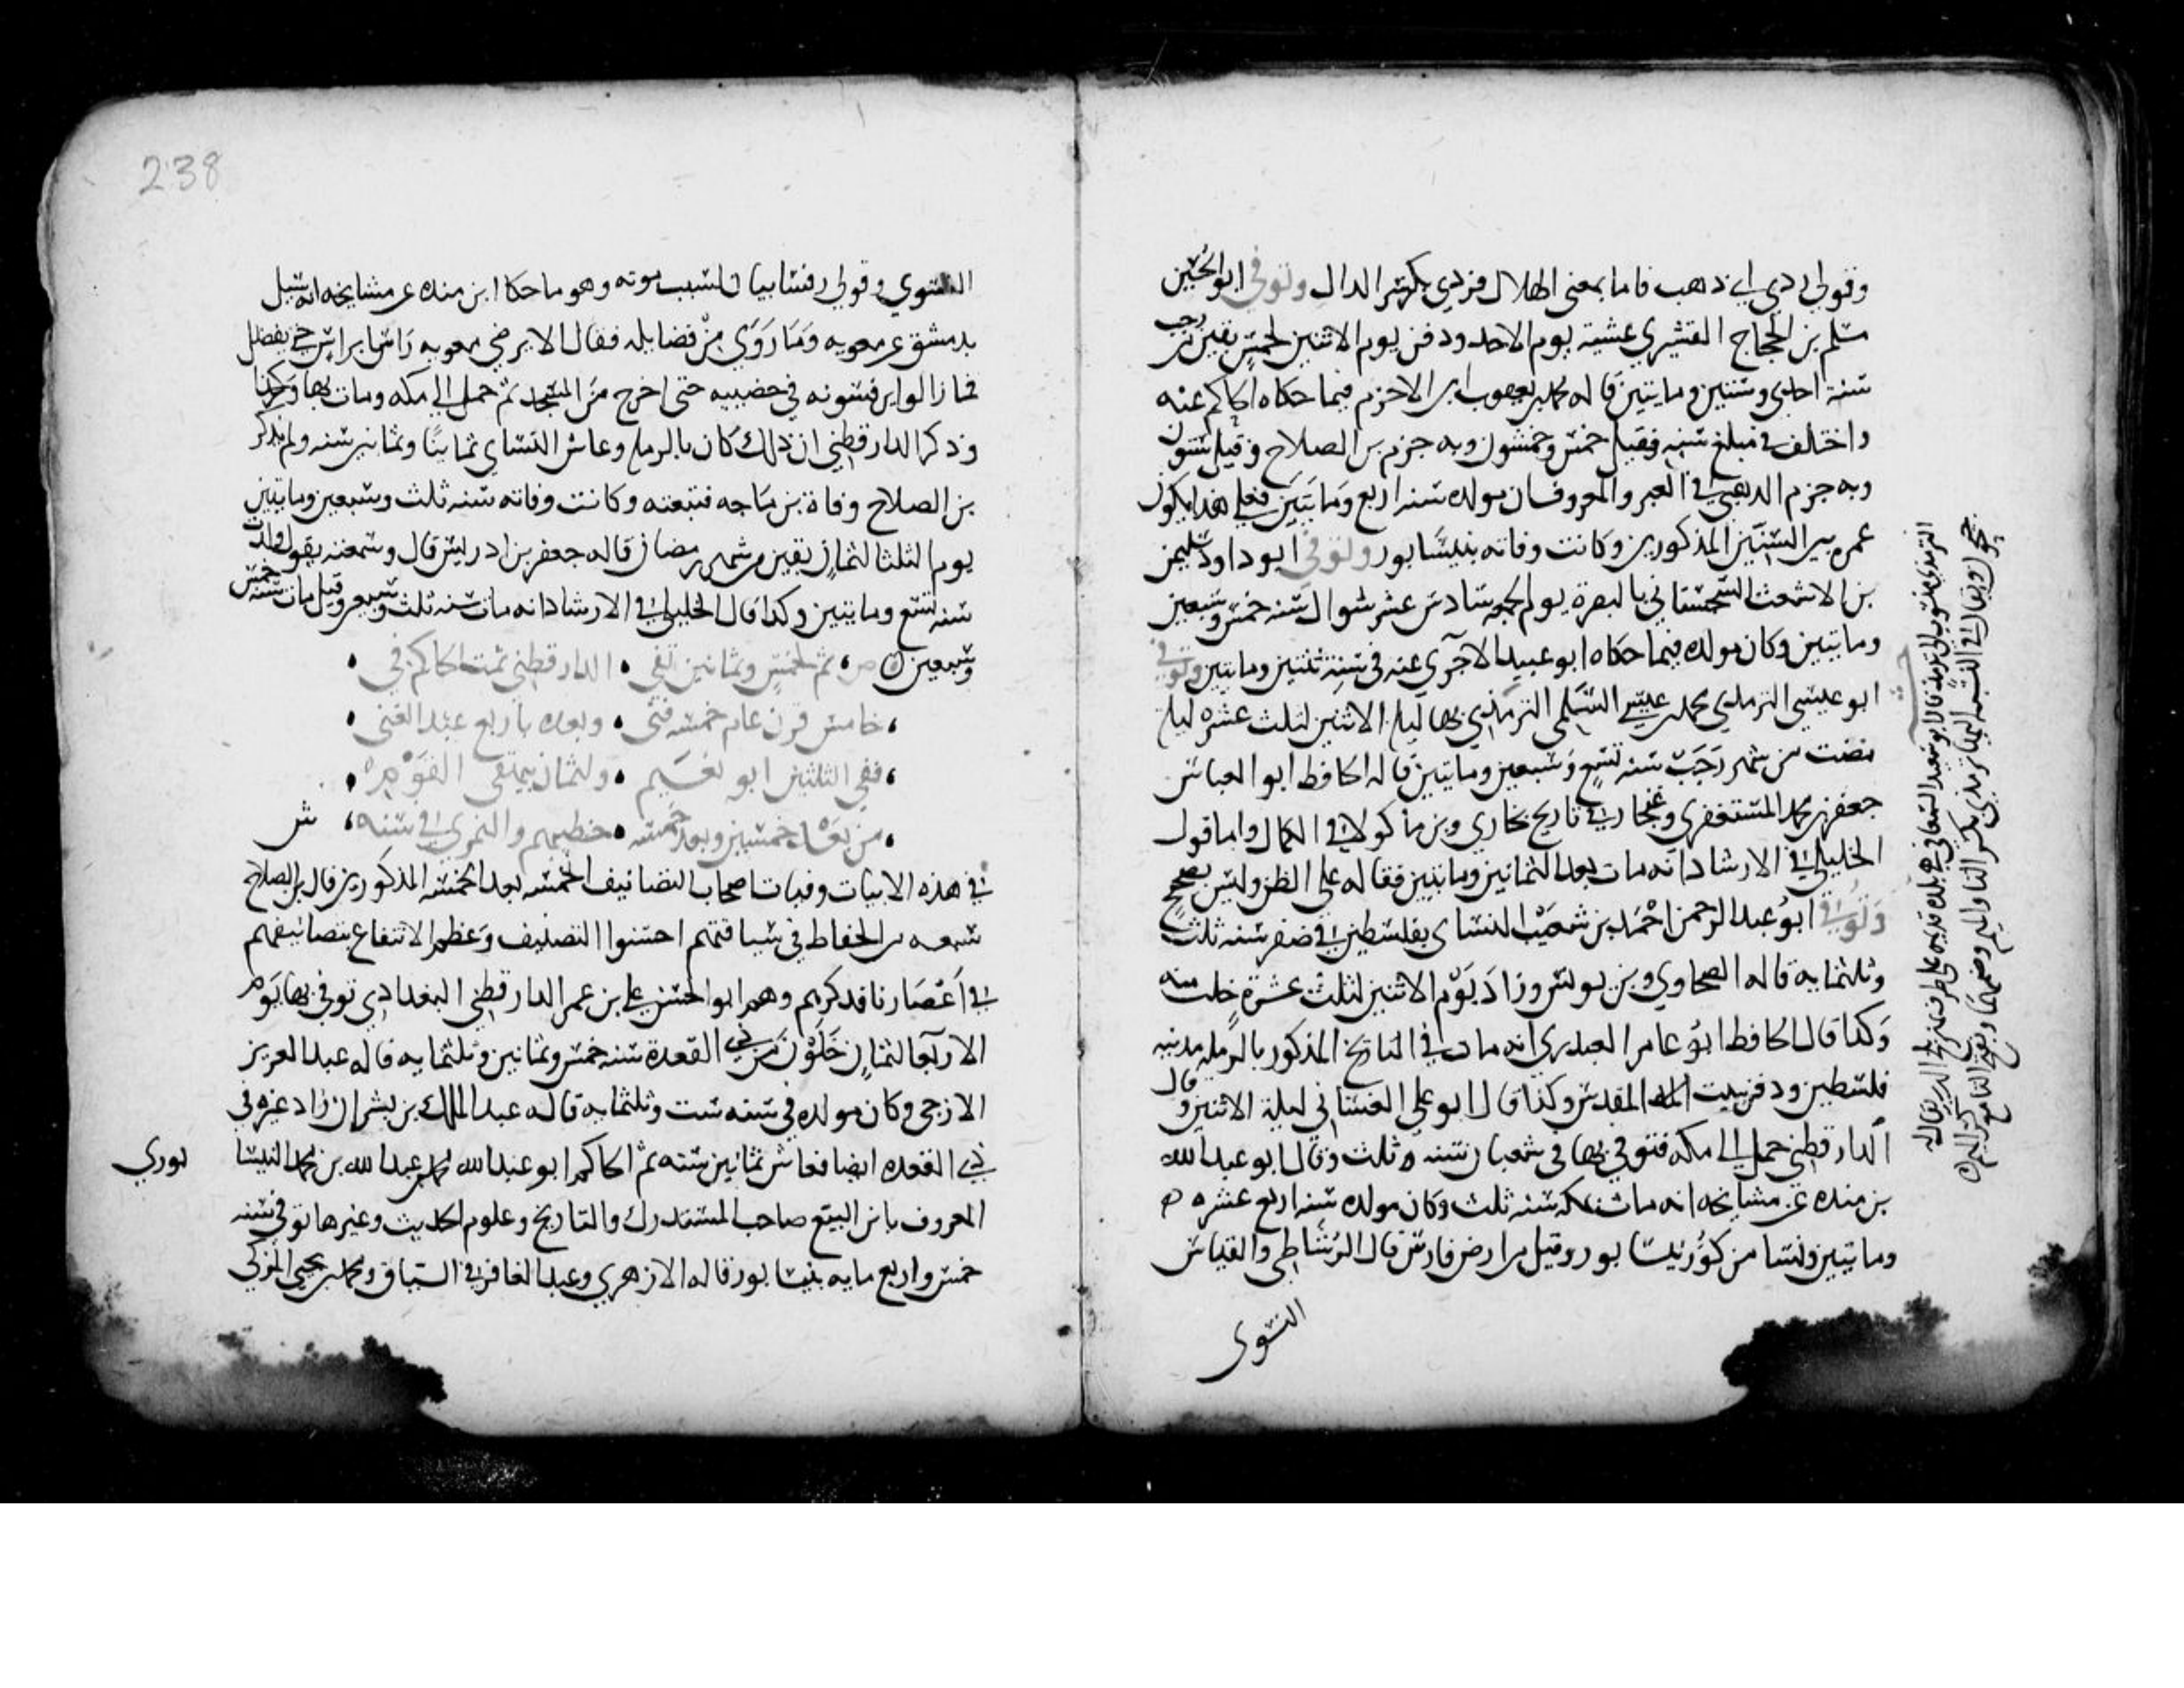 وقولي ردي اي ذهب فاما بمعنى الهلاك فردي بكسر الدال وتوفي ابو الحسين
مسلم بن الحجاج القشيري عشية يوم الاحد ودفن يوم الاثنين لخمس بقين من رجب
سنة احدى وستين ومايتين قاله محمد بن يعقوب بن الاخرم فيما حكاه الحاكم عنه
واختلف في مبلغ سنه فقيل خمس وخمسون وبه جزم بن الصلاح وقيل ستون
وبه جزم الذهبي في العبر والمعروف ان مولده سنة اربع ومايتين فعلى هذا يكون
عمره بين السنين المذكورين وكانت وفاته بنيسابور وتوفي ابو داود سليمن
بن الاشعث السجستاني بالبصرة يوم الجمعه سادس عشر شوال سنه خمس وسبعين
ومايتين وكان مولده فيما حكاه ابو عبيد الآجري عنه في سنة ثنتين ومايتين وتوفي
ابو عيسى الترمذي محمد بن عيسى السلمي الترمذي بها ليلة الاثنين لثلث عشره ليلة
مضت من شهر رجب سنه تسع وسبعين ومايتين قاله الحافظ ابو العباس
جعفر بن محمد المستغفري وغنجار في تاريخ بخاري وبن ماكولا في الكمال واما قول
الخليلي في الارشاد انه مات بعد الثمانين ومايتين فقاله على الظن وليس بصحيح
وتوفي ابو عبد الرحمن احمد بن شعيب النساي بفلسطين في صفر سنه ثلث
وثلثمايه قاله الطحاوي وبن يونس وزاد يوم الاثنين لثلث عشرة خلت منه
وكذا قال الحافظ ابو عامر العبدري انه مات في التاريخ المذكور بالرمله مدينه
فلسطين ودفن ببيت المقدس وكذا قال ابو علي الغساني ليلة الاثنين وقال
الدارقطني حمل الى مكه فتوفي بها في شعبان سنه ثلث وقال ابو عبد الله
بن منده عن مشايخه انه مات بمكه سنه ثلث وكان مولده سنه اربع عشره
ومايتين ونسا من كور نيسابور وقيل من ارض فارس قال الرشاطي والقياس
النسوي
الترمذي منسوب الى ترمذ قال ابو سعيد السمعاني هي بلده قديمه على طرف نهر بلخ الذي يقال له
جيحون ويقال في النسبه اليها ترمذي بكسر التا والميم وضمهما وبفتح التا مع كسر الميم
238
النسوي وقولي رفسا بيان لسبب موته وهو ما حكاه ابن منده عن مشايخه انه سيل
بدمشق عن معويه وما روي من فضايله فقال الا يرضى معويه راسا براس حتى يفضل
فما زالوا يرفسونه في حضنيه حتى اخرج من المسجد ثم حمل الى مكه ومات بها
وذكر الدارقطني ان ذلك كان بالرملة وعاش النساي ثمانيا وثمانين سنه ولم يذكر
بن الصلاح وفاة بن ماجه فتبعته وكانت وفاته سنه ثلث وسبعين ومايتين
يوم الثلثا لثمان بقين من شهر رمضان قاله جعفر بن ادريس قال وسمعته يقول ولدت
سنه تسع ومايتين وكذا قال الخليلي في الارشاد انه مات سنه ثلث وسبعين وقيل مات سنه خمس
وسبعين ص ثم لخمس وثمانين تفي • الدارقطني ثمت الحاكم في
خامس قرن عام خمسه فني • وبعده باربع عبد الغني
ففي الثلثين ابو نعيم • ولثمان بيهقي القوم
من بعد خمسين وبعد خمسه • خطيبهم والنمري في سنه ش
في هذه الابيات وفيات اصحاب التصانيف الخمسه بعد الخمسه المذكورين قال بن الصلاح
سبعه من الحفاظ في ساقتهم احسنوا التصنيف وعظم الانتفاع بتصانيفهم
في اعصارنا فذكرهم وهم ابو الحسن علي بن عمر الدارقطني البغدادي توفي بها يوم
الاربعا لثمان خلون من ذي القعدة سنه خمس وثمانين وثلثمايه قاله عبد العزيز
الازجي وكان مولده في سنه ست وثلثمايه قاله عبد الملك بن بشران زاد غيره في
ذي القعده ايضا فعاش ثمانين سنه ثم الحاكم ابو عبد الله محمد بن عبد الله بن محمد النيسا
بوري
المعروف بابن البيع صاحب المستدرك والتاريخ وعلوم الحديث وغيرها توفي سنه
خمس واربع مايه بنيسابور قاله الازهري وعبد الغافر في السياق ومحمد بن يحيى المزكي